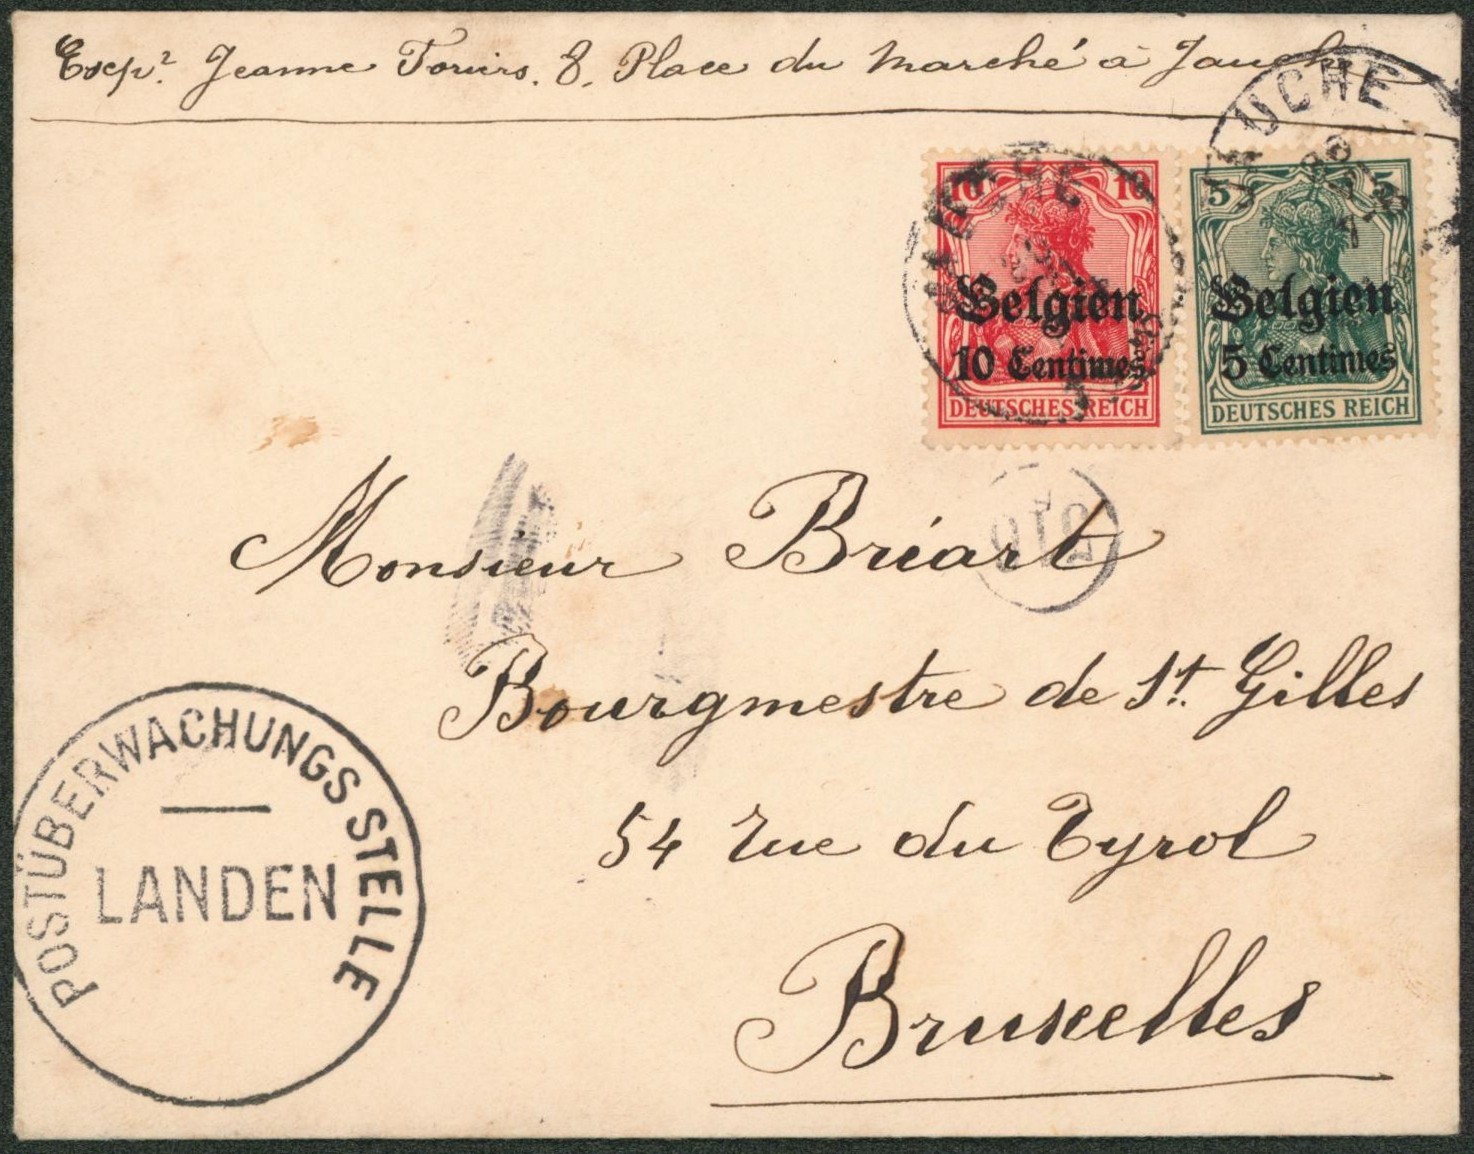 Exp.r Jeanne Toriers. 8. Place du Marché à Jauche
JAUCHE
JAUCHE
10 10
Belgien
10 Centimes
DEUTSCHES REICH
5 5
Belgien
5 Centimes
DEUTSCHES REICH
Monsieur Briart
Bourgmestre de St. Gilles
54 rue du Tyrol
Bruxelles
POSTÜBERWACHUNGSSTELLE
LANDEN